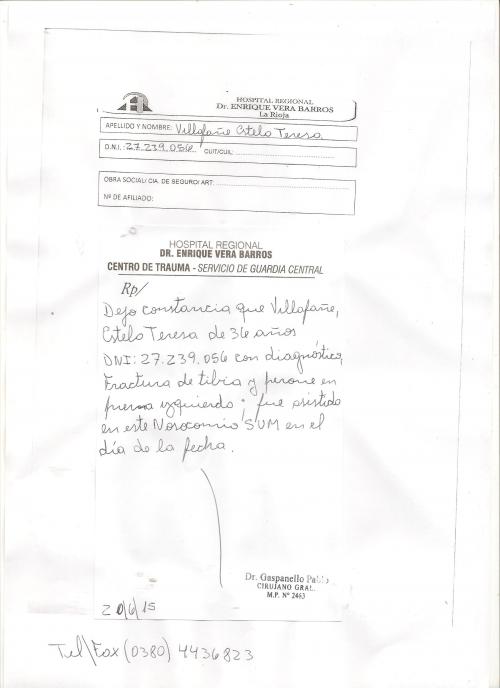 HOSPITAL REGIONAL
Dr. ENRIQUE VERA BARROS
La Rioja
APELLIDO Y NOMBRE: Villafañe Estela Teresa
D.N.I.: 27.239.056 CUIT/CUIL:
OBRA SOCIAL/ CIA. DE SEGURO/ ART:
Nº DE AFILIADO:
HOSPITAL REGIONAL
DR. ENRIQUE VERA BARROS
CENTRO DE TRAUMA - SERVICIO DE GUARDIA CENTRAL
Rp/
Dejo constancia que Villafañe,
Estela Teresa de 36 años
DNI: 27.239.056 con diagnóstico,
Fractura de tibia y perone en
pierna izquierda; fue asistida
en este Nosocomio SUM en el
día de la fecha.
Dr. Gaspanello Pablo
CIRUJANO GRAL.
M.P. Nº 2463
20/6/15
Tel/Fax (0380) 4436823